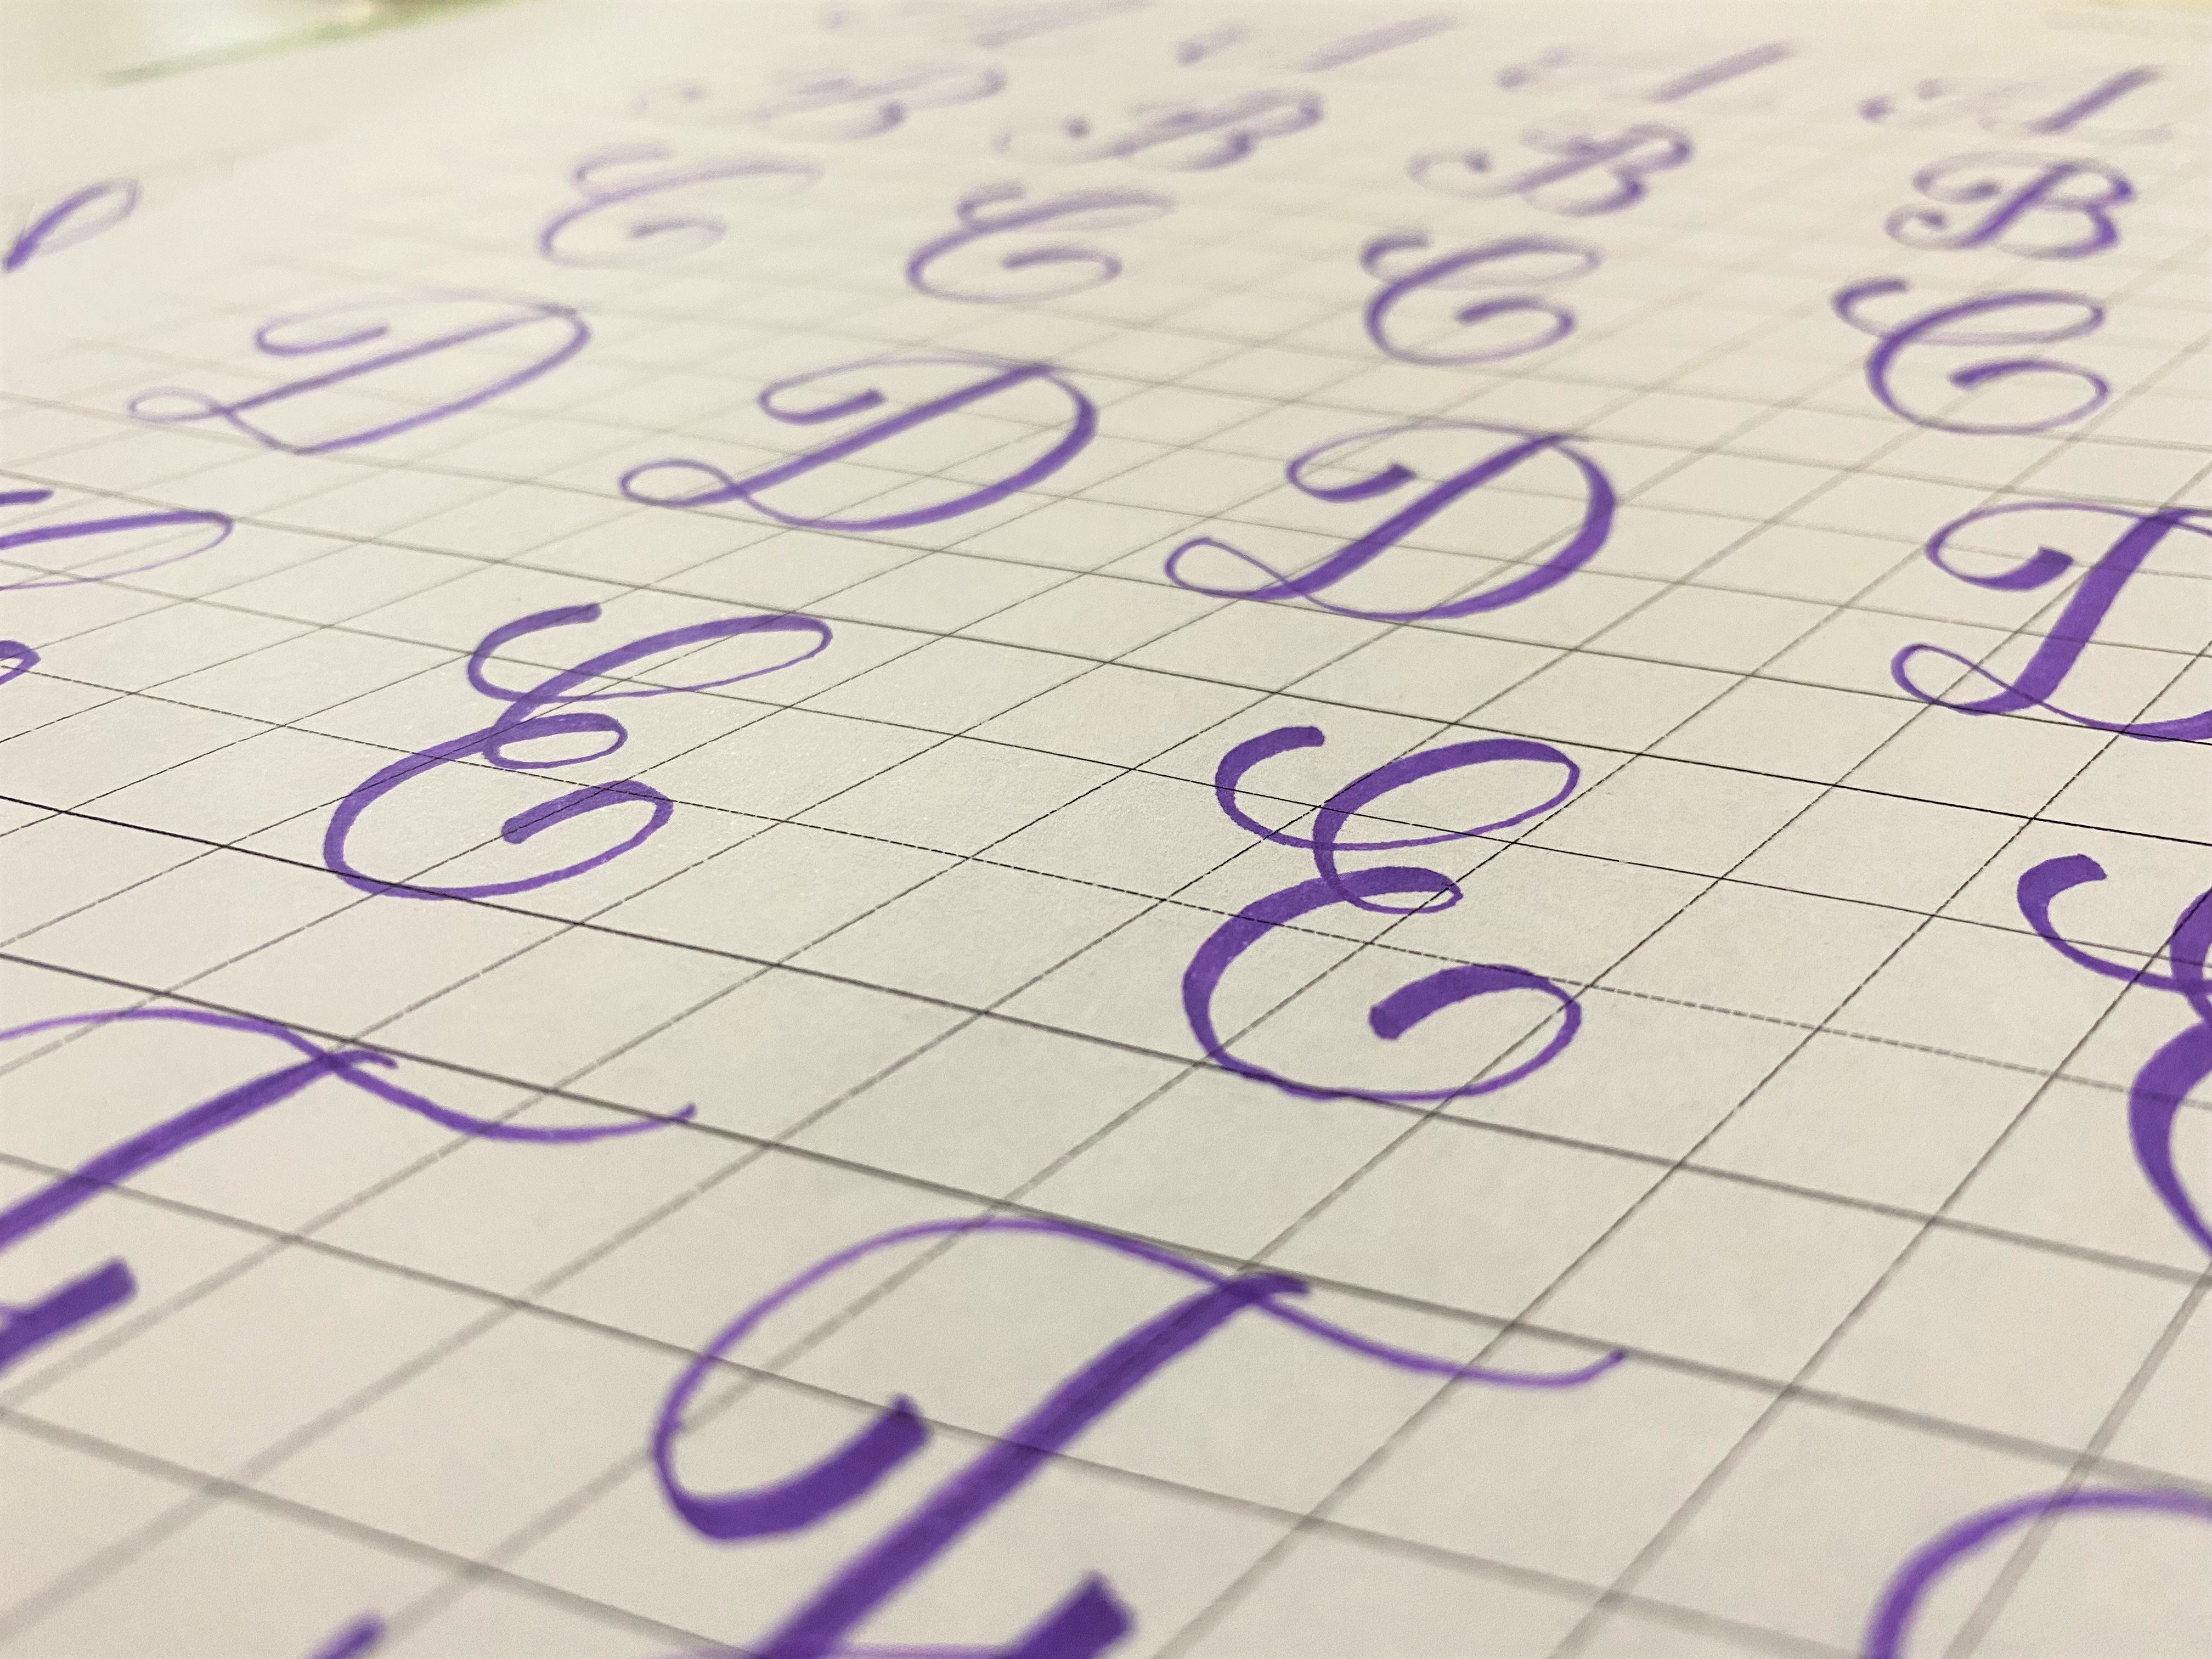 A A A A
B B B B
C C C C
D D D D
E E E
F F